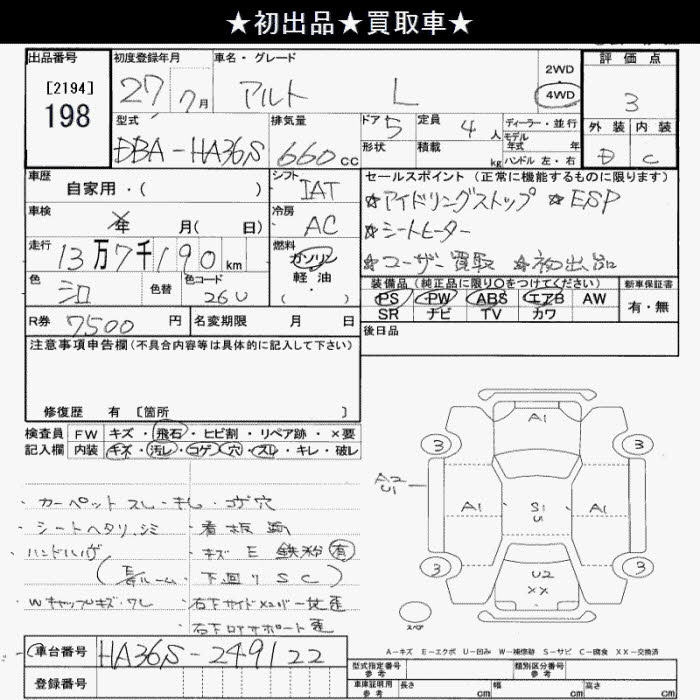 ★初出品★買取車★
出品番号
[2194]
198
初度登録年月
27 7月
車名・グレード
アルト L
2WD
4WD
評価点
3
外装 内装
D C
型式
DBA-HA36S
排気量
660cc
ドア 5
形状
定員 4人
積載 kg
ディーラー・並行
モデル年式 年
ハンドル 左・右
車歴
自家用・( )
シフト
IAT
セールスポイント(正常に機能するものに限ります)
☆アイドリングストップ ☆ESP
☆シートヒーター
☆ユーザー買取 ☆初出品
車検
年 月( 日)
冷房
AC
走行
13万7千190km
燃料
ガソリン
軽油
( )
色
シロ
色替
色コード
26U
装備品(純正品に限り○をつけてください)
PS PW ABS エアB AW
SR ナビ TV カワ
新車保証書
有・無
R券 7500円
名変期限 月 日
後日品
注意事項申告欄(不具合内容等は具体的に記入して下さい)
修復歴 有 [箇所 ]
検査員記入欄
FW キズ・飛石・ヒビ割・リペア跡・×要
内装 キズ・汚レ・コゲ・穴・スレ・キレ・破レ
・カーペットスレ・キレ・コゲ穴
・シートヘタリ、シミ ・看板跡
・ハンドルハゲ ・キズ E 鉄粉有
ルーム・下回りSC)
・Wキャップキズ・ワレ ・右下サイドメンバー
・右下ロアサポート
A1
3 3
A2
U1
A1
S1
U1
A1
3 3
U2
XX
スペア
A-キズ E-エクボ U-凹み W-補修跡 S-サビ C-腐食 XX-交換済
車台番号 HA36S-249122
登録番号
型式指定番号 参考
類別区分番号 参考
車庫証明用 参考
長さ cm 幅 cm 高さ cm